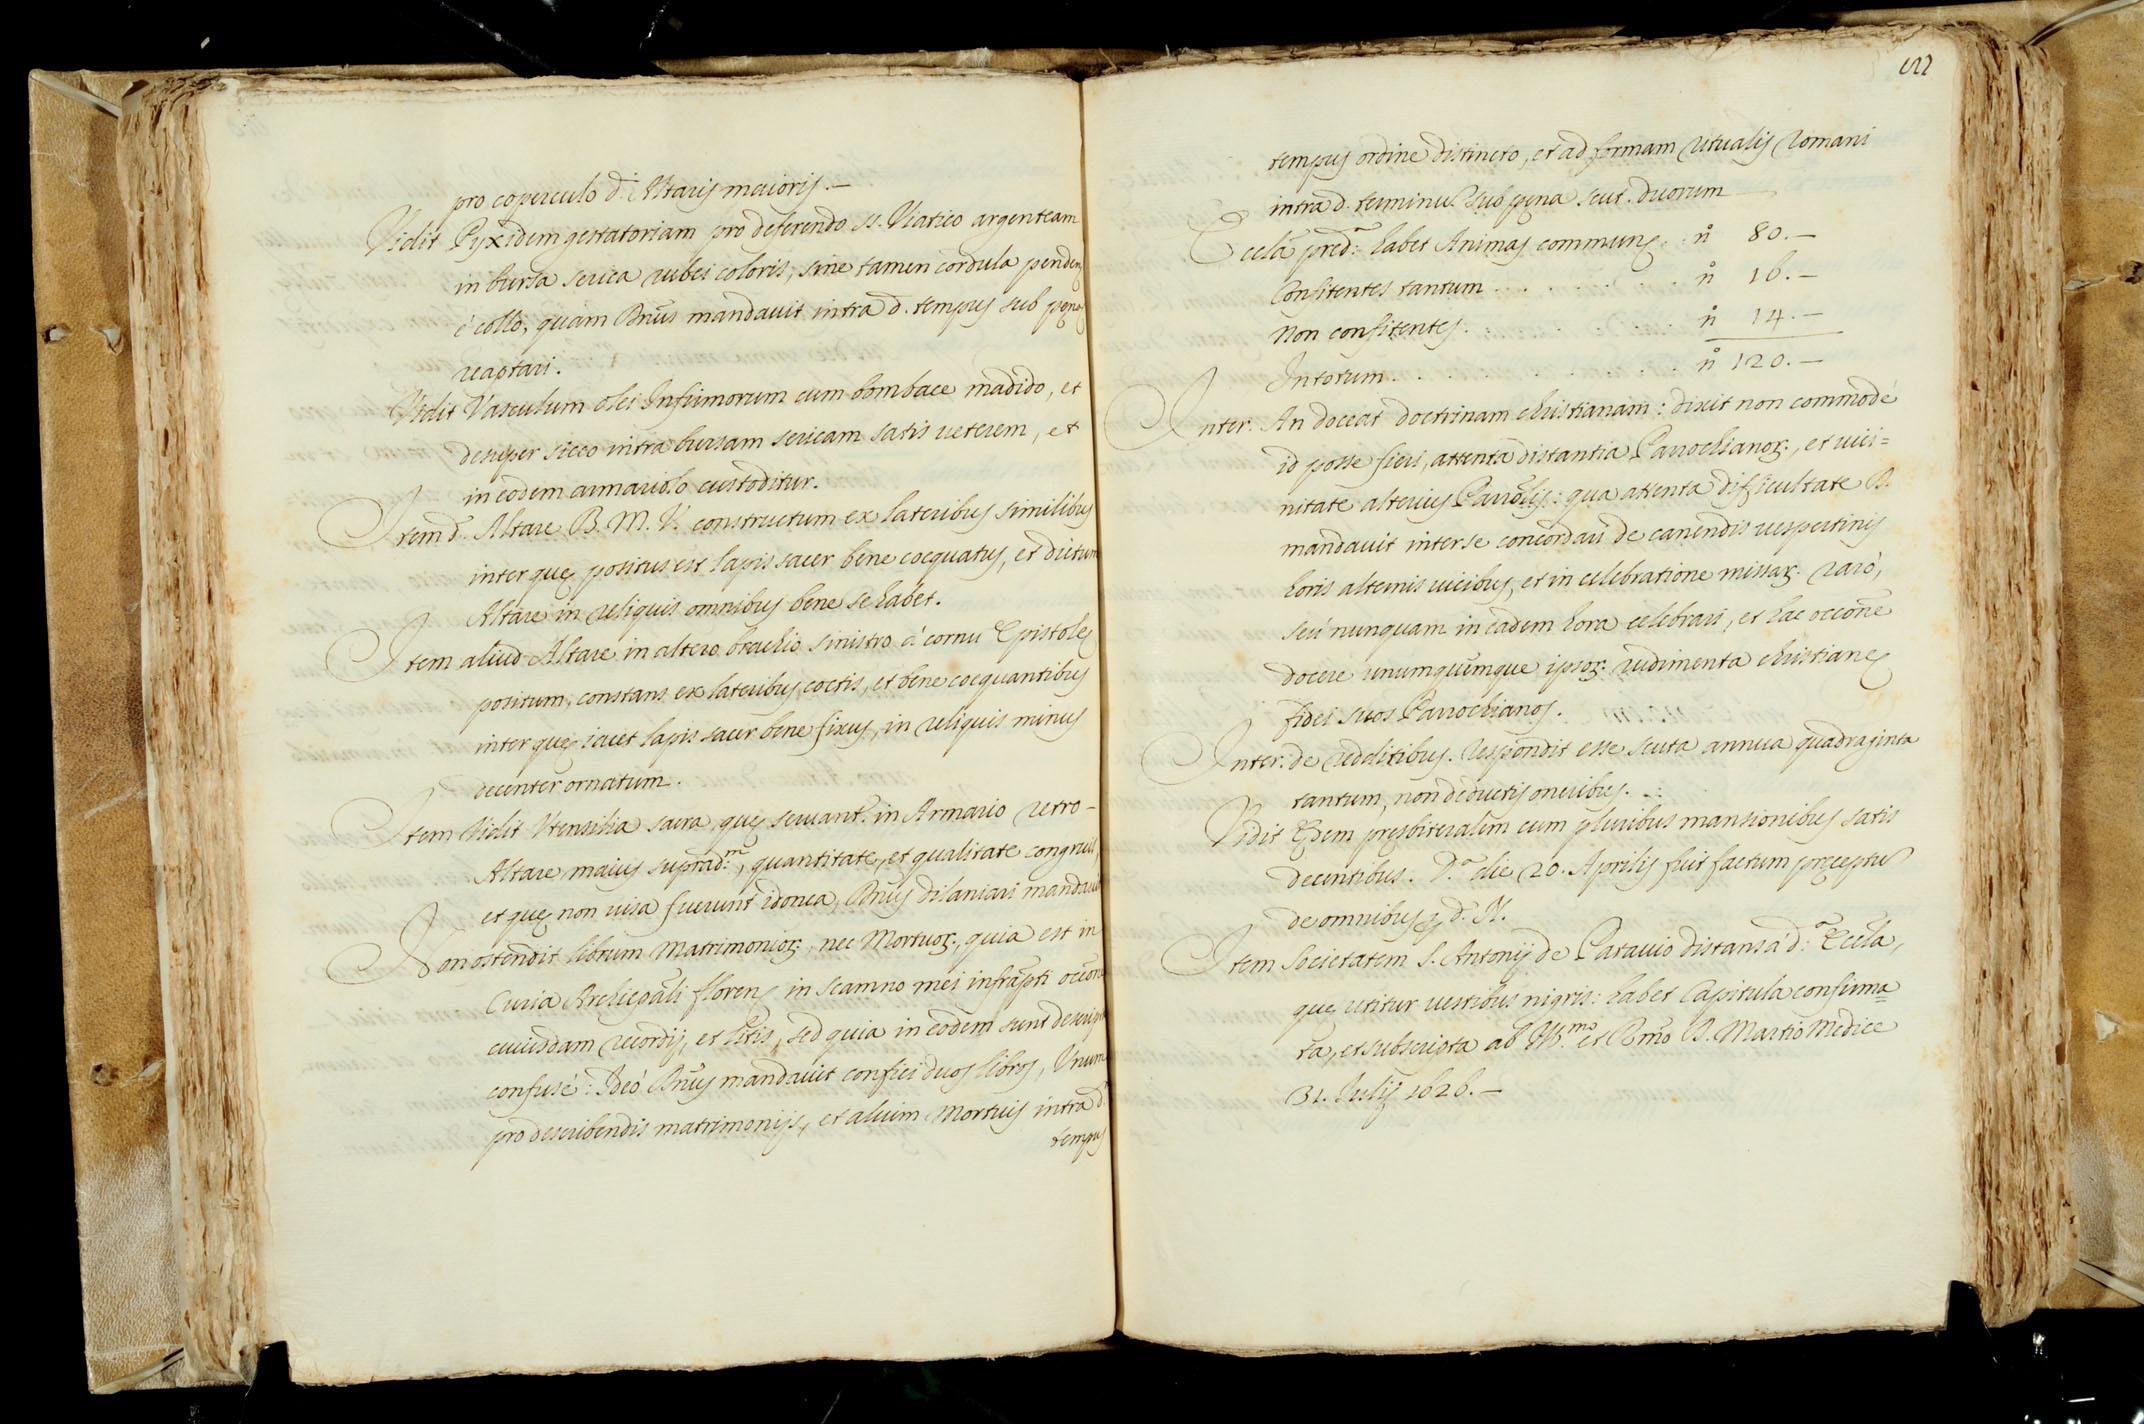 pro coperculo d.i Altaris maioris.—
Vidit Pyxidem gestatoriam pro deferendo ss. Viatico argenteam
in bursa serica rubei coloris, sine tamen cordula penden
è collo, quam Bnus mandavit intra d. tempus sub pęna
reaptari.
Vidit Vasculum olei Infirmorum cum bombace madido, et
desuper sicco intra bursam sericam satis veterem, et
in eodem armariolo custoditur.
Item d. Altare B. M. V. constructum ex lateribus similibus
inter quę positus est lapis sacer bene coequatus, et dictum
Altare in reliquis omnibus bene se habet.
Item aliud Altare in altero brachio sinistro à cornu Epistolę
positum, constans ex lateribus coctis, et bene coequantibus
inter quę iacet lapis sacer bene fixus, in reliquis minus
decenter ornatum.
Item Vidit Vtensilia sacra, quę servant.r in Armario retro-
Altare maius suprad.m, quantitate, et qualitate congruis,
et quę non visa fuerunt idonea, Bnus dilaniari mandavit
Non ostendit librum Matrimonior., nec Mortuor., quia est in
Curia Archiepali floren. in scamno mei infrapti occone
cuiusdam recordij, et litis, sed quia in eodem sunt descripti
confusè: Ideò Bnus mandavit confici duos libros, Vnum
pro describendis matrimonijs, et alium Mortuis intra d.
tempus
122
tempus ordine distincto, et ad formam Ritualis Romani
intra d. terminu. sub pęna scut. duorum
Eccla pred.a habet Animas commun. . n.o 80.—
Confitentes tantum . . . . . . n.o 16.—
Non confitentes. . . . . . n.o 14.—
In totum. . . . . . . . . n.o 120.—
Inter. An doceat doctrinam christianam: dixit non commodè
id posse fieri, attenta distantia Parrochianor., et vici=
nitate alterius Parrolis: qua attenta difficultate B.
mandavit inter se concordari de canendis vespertinis
horis alternis vicibus, et in celebratione missar. rarò,
seù nunquam in eadem hora celebrari, et hac occone
docere unumquemque ipsor. rudimenta christianę
fidei suos Parrochianos.
Inter. de redditibus. Respondit esse scuta annua quadraginta
tantum, non deductis oneribus.
Vidit Ędem presbiteralem cum pluribus mansionibus satis
decentibus. D.a die 20. Aprilis fuit factum pręceptu
de omnibus p d. N.
Item Societatem S. Antonij de Patavio distans à d.a Eccla,
quę utitur vestibus nigris: habet Capitula confirma=
ta, et subscripta ab Ill.mo et Rmo D. Martio Medice
31. Iulij 1626.—